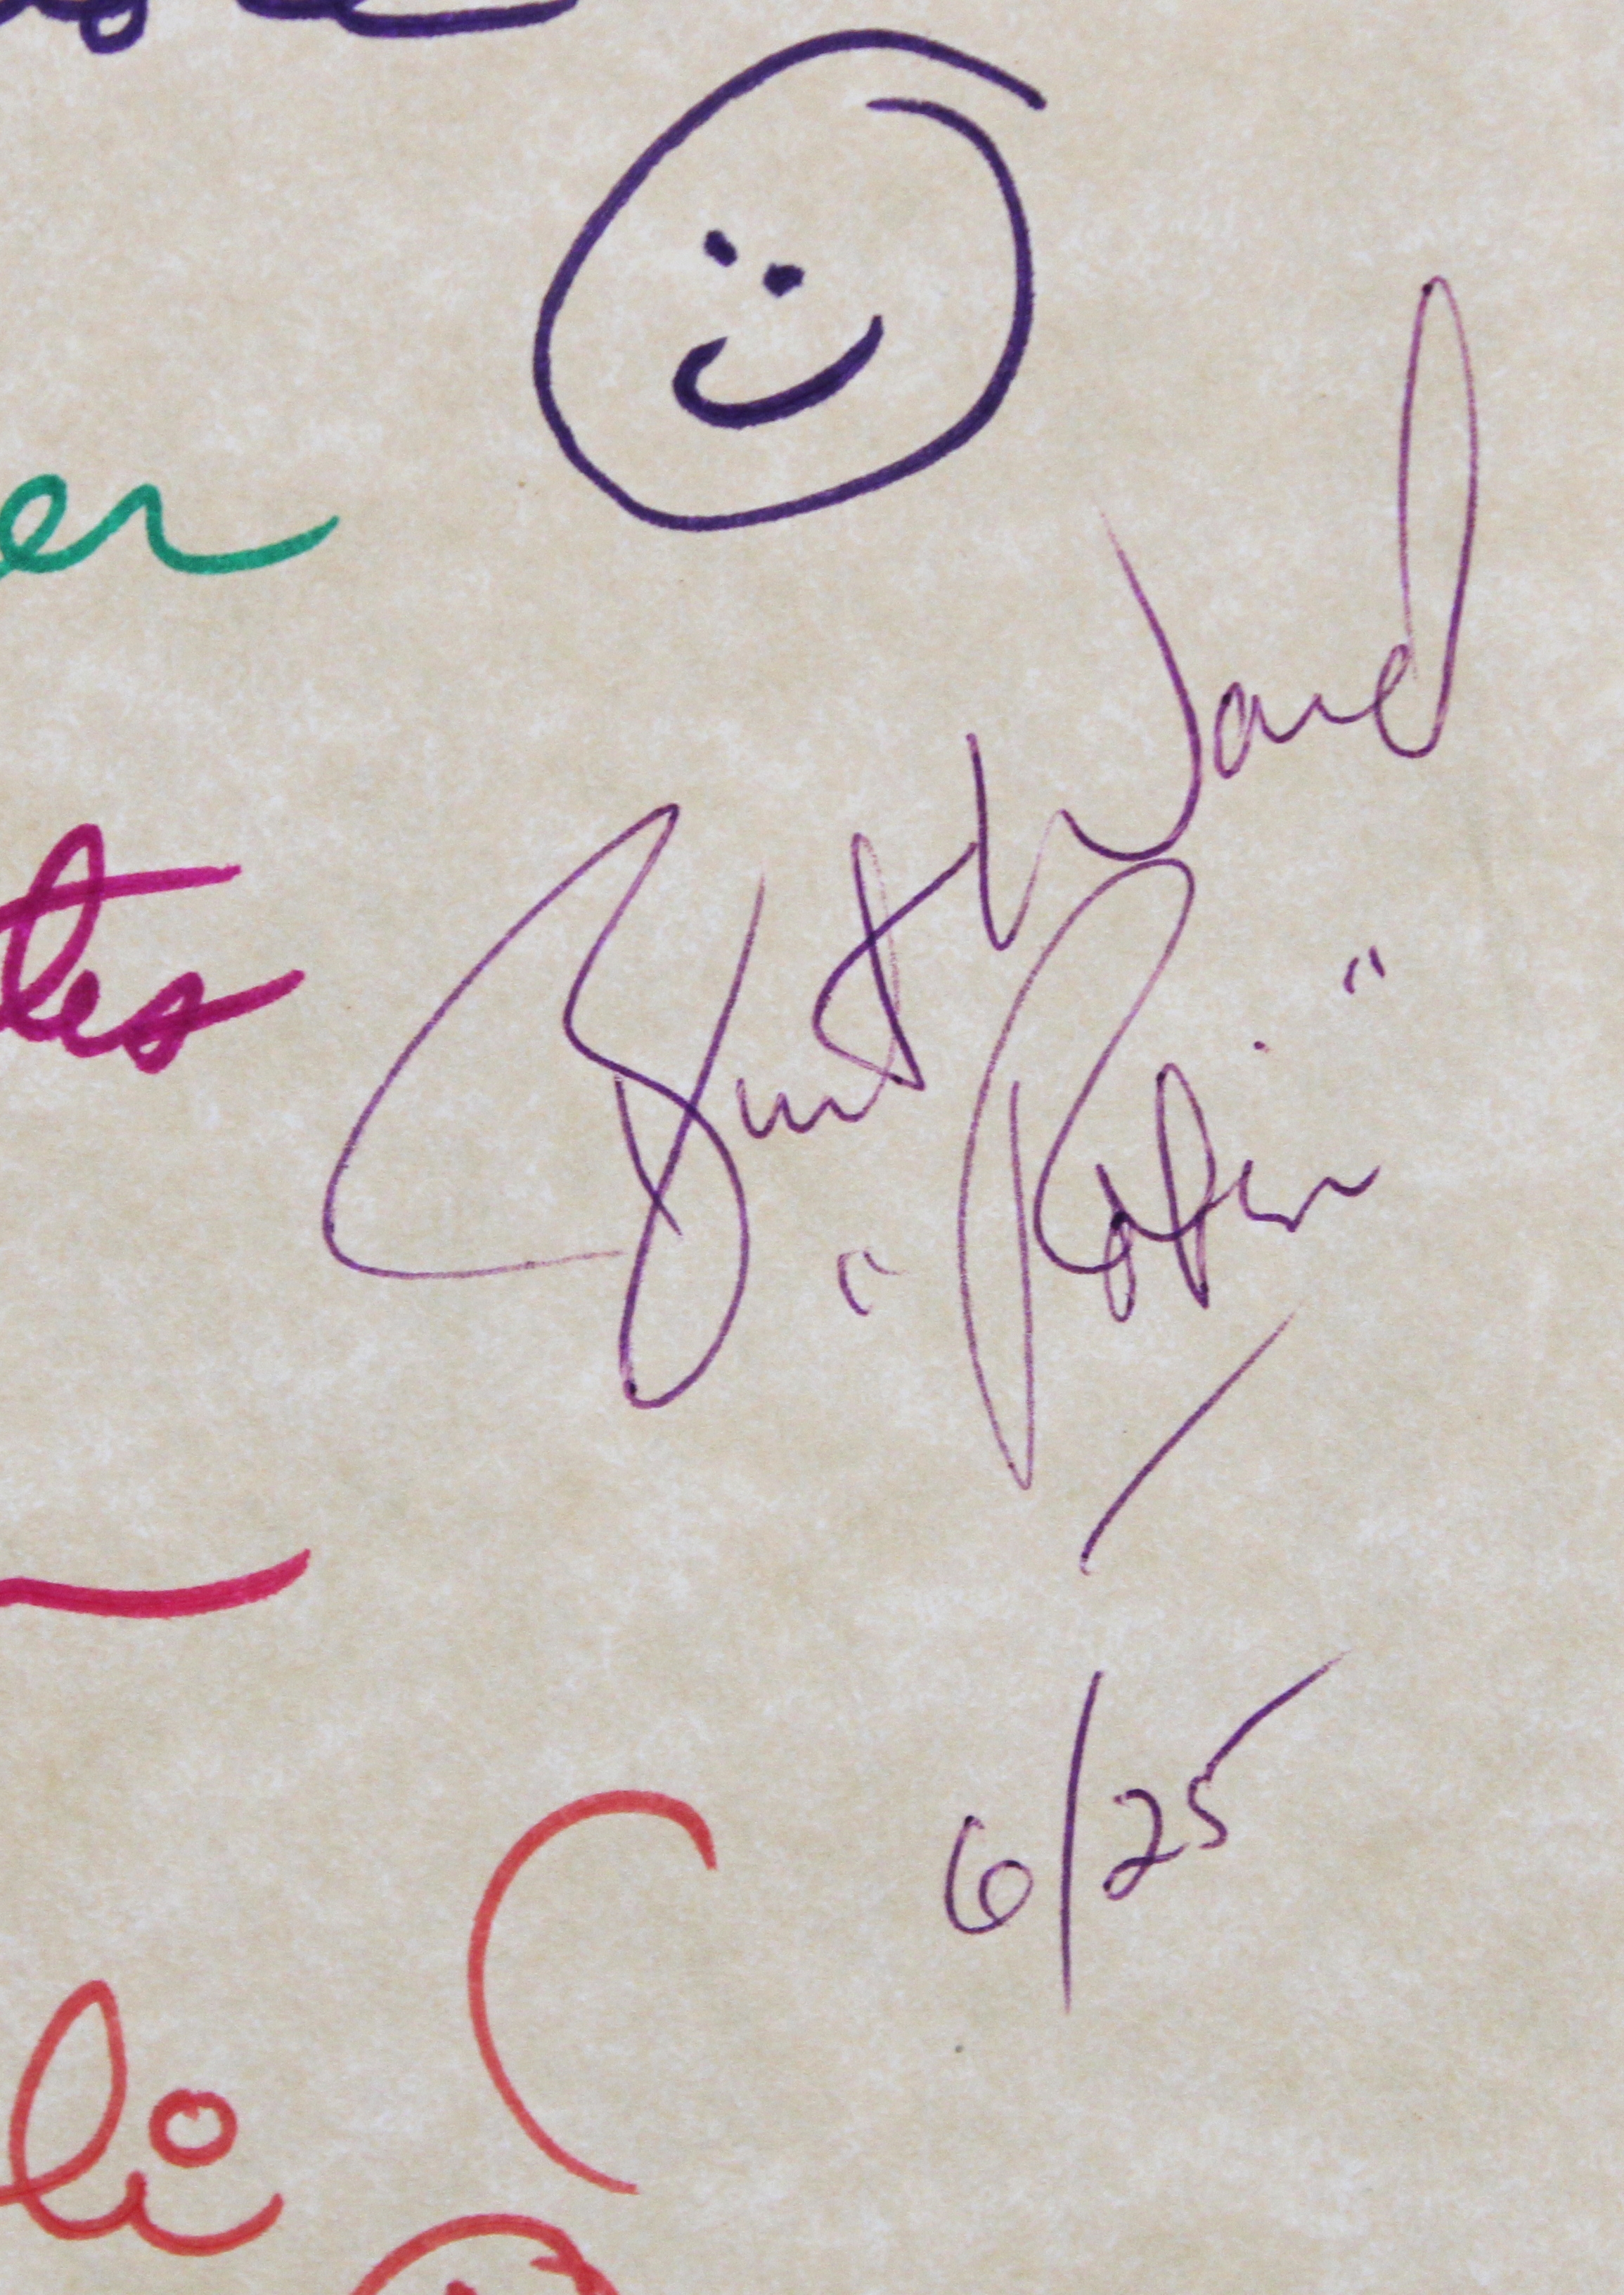 er
Burt Ward
tes
"Robin"
6/25
li